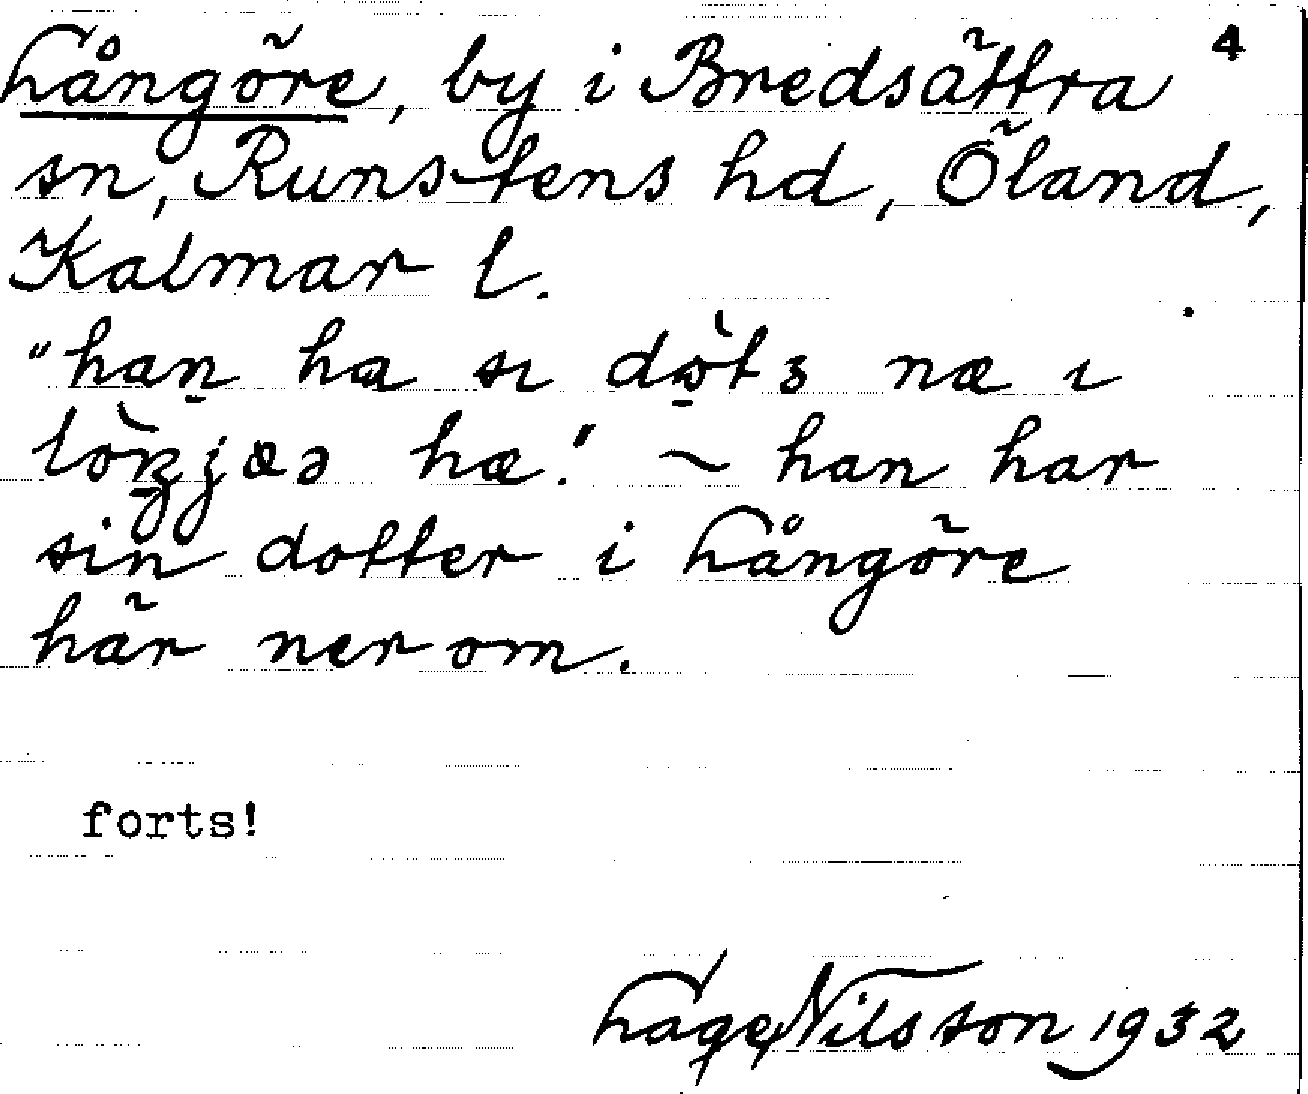 Långöre, by i Bredsättra 4
sn, Runstens hd, Öland,
Kalmar l.
"han ha sı dòtɜ næ ı
lòŋjœə hæ!" ~ han har
sin dotter i Långöre
här nerom.
forts!
Lage Nilsson 1932